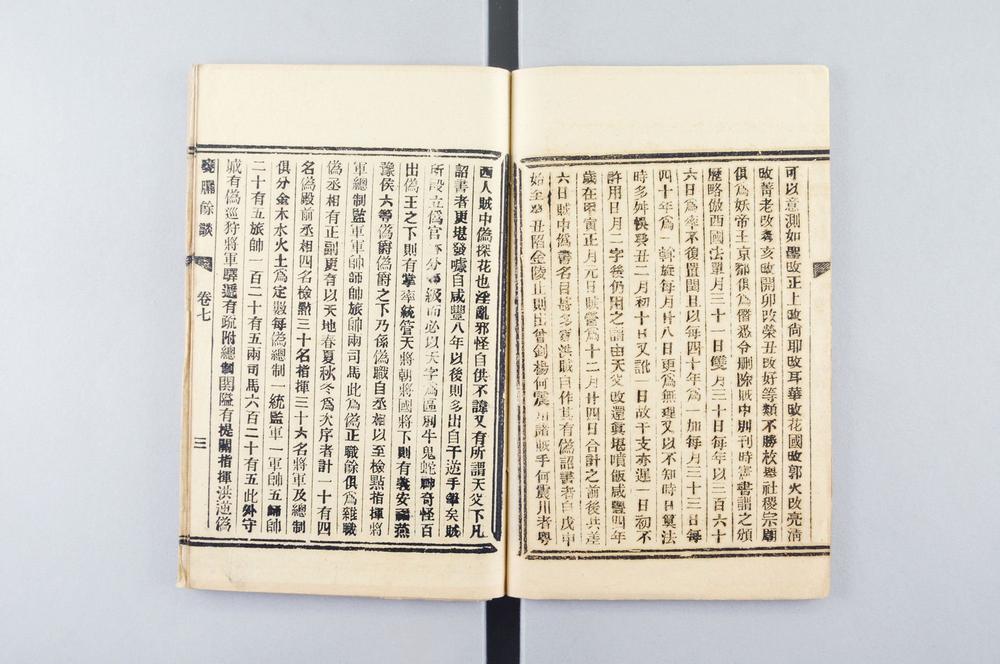 可以意測如聖改正上改尚耶改耳華改花國改郭火改亮清
改菁老改考亥改開卯改榮丑改好等類不勝枚舉社稷宗廟
俱爲妖帝王京都俱爲僭悉令刪除賊中別刊時憲書謂之頒
歷略倣西國法單月三十一日雙月三十日每年以三百六十
六日爲率不復置閏且以每四十年爲一加每月三十三日每
四十年爲一斡旋每月廿八日更爲無理又以不知時日算法
時多舛悞癸丑二月初十日又訛一日故干支亦遲一日初不
許用日月二字後仍用之謂由天父改還眞堪噴飯咸豐四年
歲在甲寅正月元日賊營爲十二月廿四日合計之前後共差
六日賊中僞書名目甚多洪賊自作其有僞詔書者自戊申
始至癸丑陷金陵止則曾釗揚何震川諸賊手何震川者粵
西人賊中僞探花也淫亂邪怪自供不諱又有所謂天父下凡
詔書者更堪發噱自咸豐八年以後則多出自干逆手筆矣賊
所設立僞官分等級而必以天字爲區別牛鬼蛇神奇怪百
出僞王之下則有掌率統管天將朝將國將下則有義安福燕
豫侯六等僞爵僞爵之下乃係僞職自丞相以至檢點指揮將
軍總制監軍軍帥師帥旅帥兩司馬此爲僞正職餘俱爲雜職
僞丞相有正副更有以天地春夏秋冬爲次序者計一十有四
名僞殿前丞相四名檢點三十名指揮三十六名將軍及總制
俱分金木水火土爲定數每僞總制一統監軍一軍帥五師帥
二十有五旅帥一百二十有五兩司馬六百二十有五此外守
城有僞巡狩將軍驛遞有疏附總制關隘有提關指揮洪逆僞
甕牖餘談
卷七
三